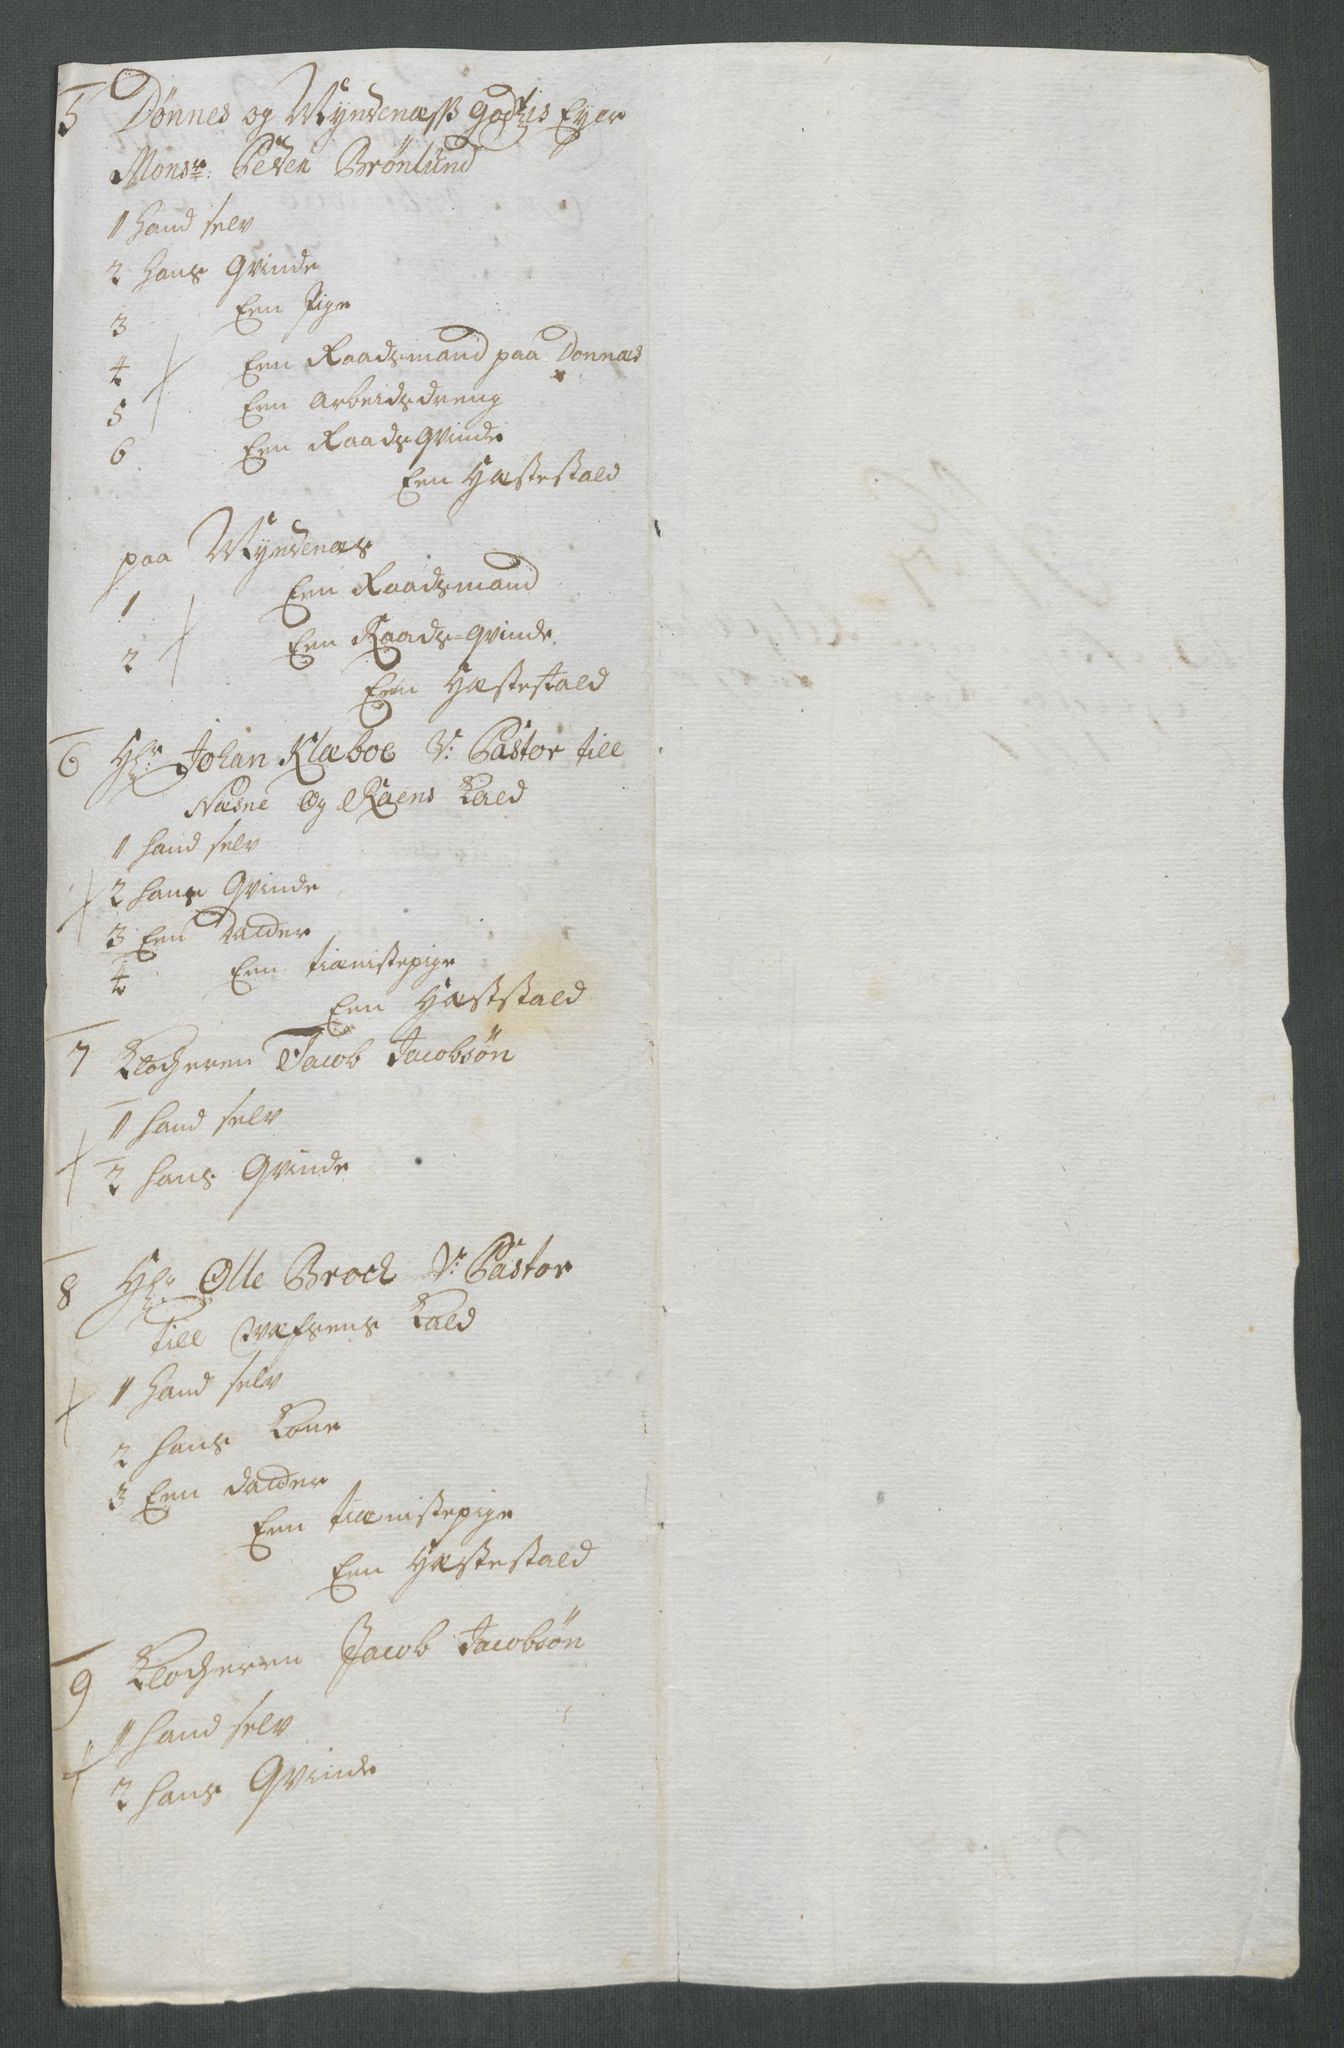 5 Dønnes og Mÿndenæss godtzes Eyer
Monsr: Peder Brönlund
1 hand selv
2 hans Qvinde
3 Een Pige
4 Een Raadsmand paa Donnæs
5 Een Arbeidsdreng
6 Een Raads Qvinde
Een Hæstestald
paa Mÿndenæs
1 Een Raadsmand
2 Een Raads=qvinde
Een Hæstestald
6 Hr: Johan Klæboe V: Pastor till
Næsne Og Raens Kald
1 hand selv
2 hans Qvinde
3 Een Datter
4 Een tienistepige
Een Hæststald
7 Klocheren Jacob Jacobsøn
1 hand selv
2 hans Qvinde
8 Hr: Olle Brock V: Pastor
till Wefsens Kald
1 hand selv
2 hans Kone
3 Een datter
Een tienistepige
Een Hæstestald
9 Klocheren Jacob Jacobsøn
1 hand selv
2 hans Qvinde